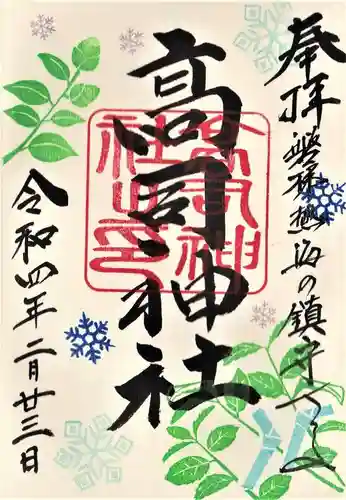 奉拝 磐梯熱海の鎮守
高司神社
高司神社之印
令和四年二月廿三日